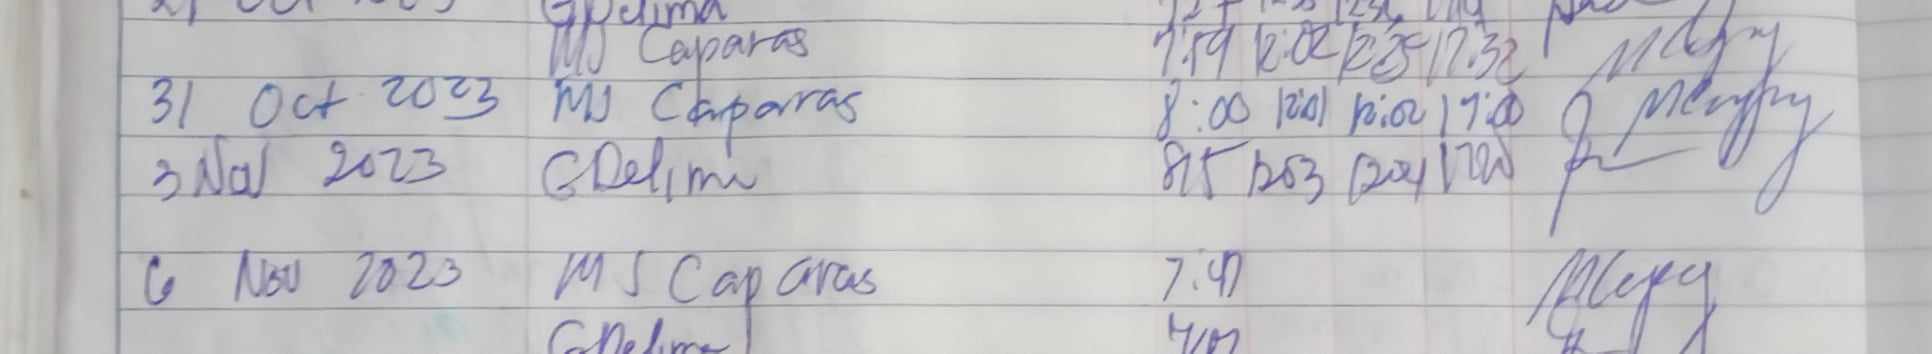 GDelima
MS Caparas 7:59 12:02 12:25 17:32
31 Oct 2023 MS Caparas 8:00 12:01 12:02 17:00
3 Nov 2023 GDelima 815 1203 1204 1720
6 Nov 2023 MS Caparas 7:47
GDelima